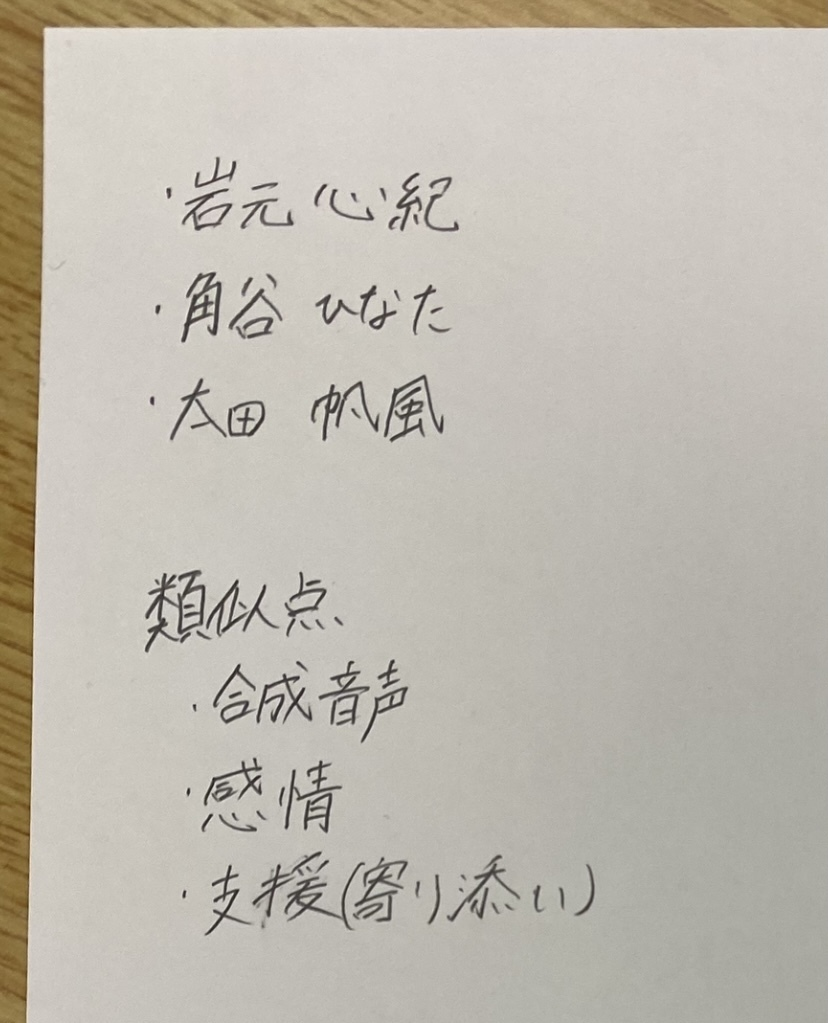 ・岩元 心紀
・角谷 ひなた
・太田 帆風
類似点
・合成音声
・感情
・支援(寄り添い)